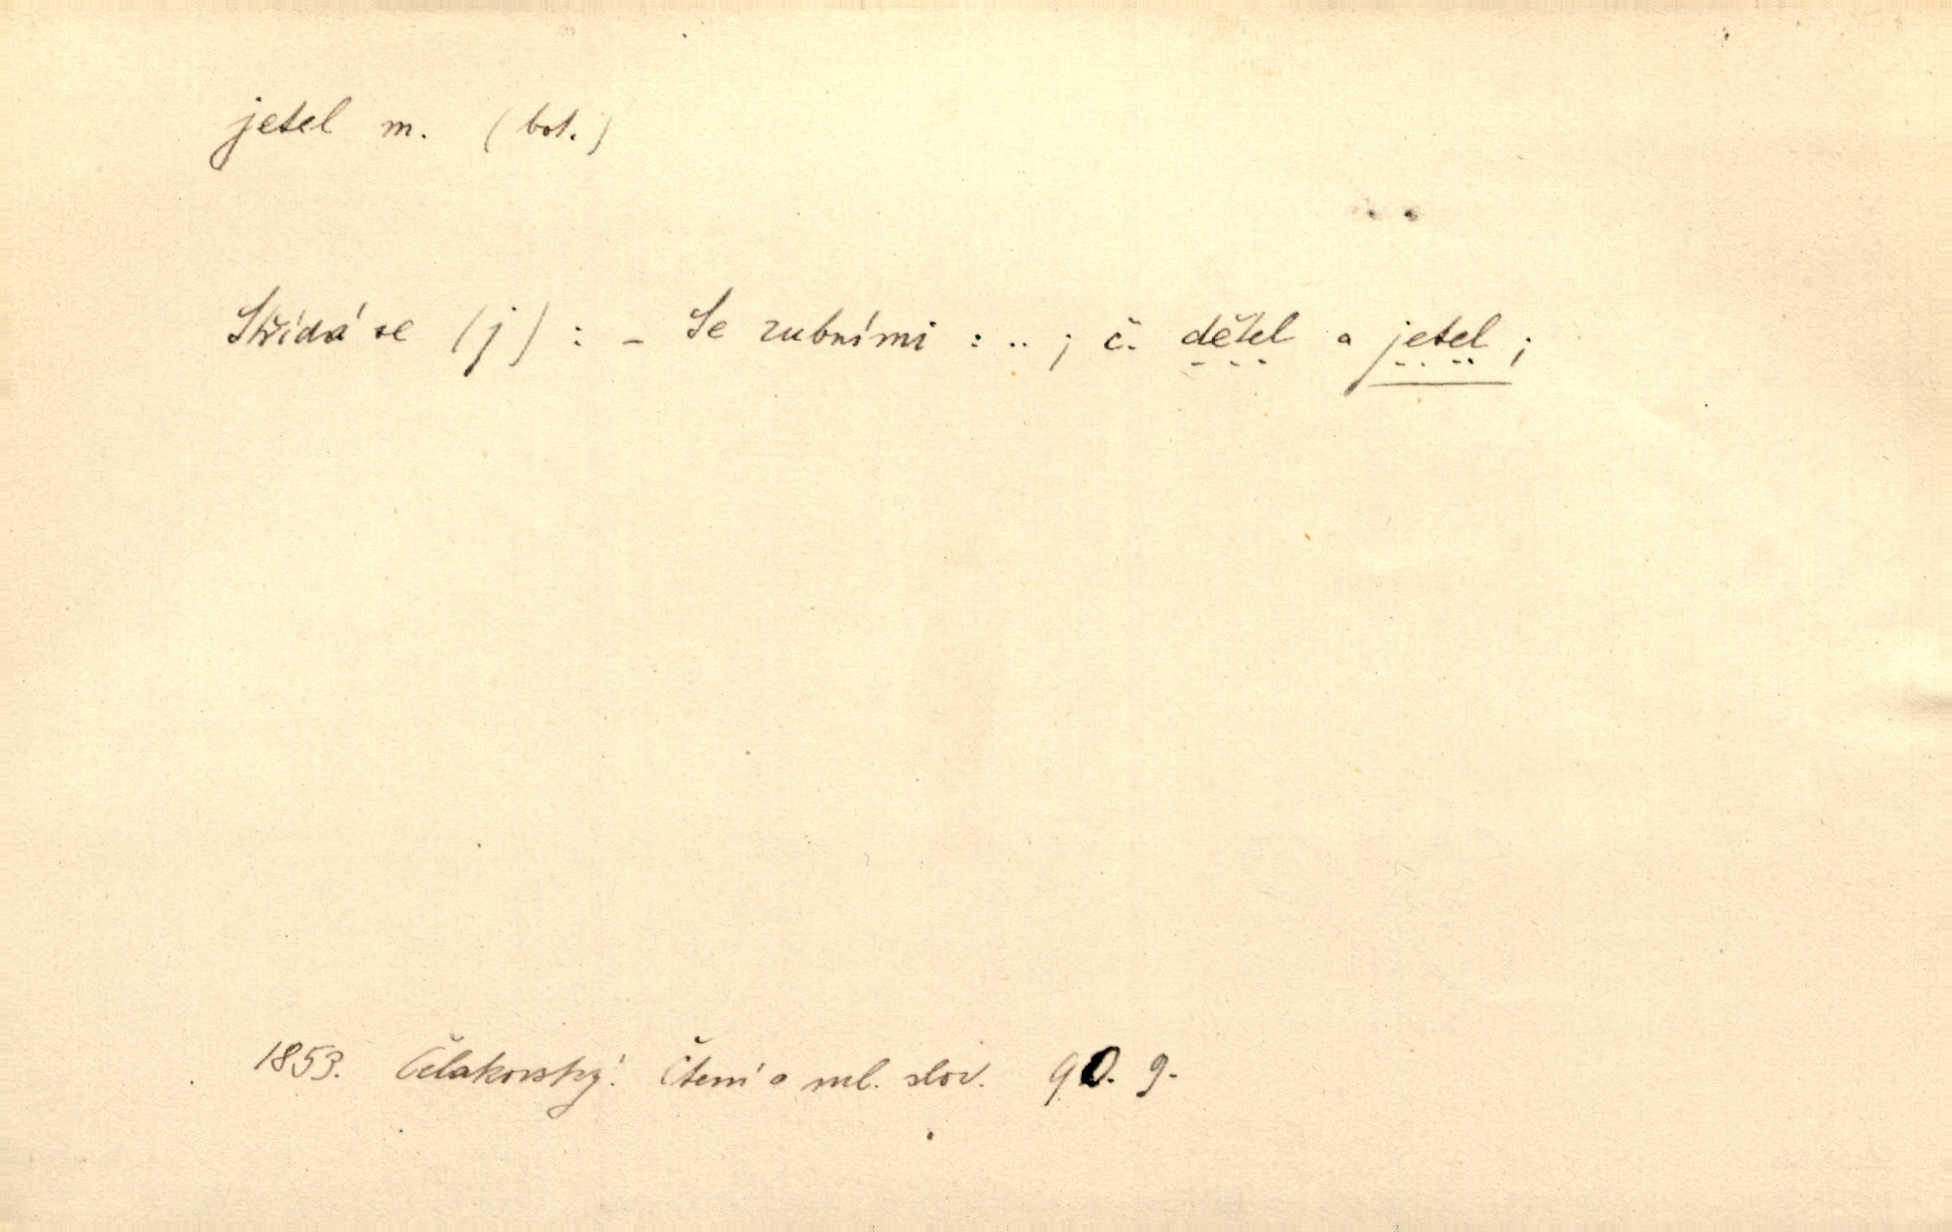 jetel m. (bot.)
Střídá se (j) : – Se zubními : .. ; č. dětel a jetel ;
1853. Čelakovský. Čtení o ml. slov. 90. 9.